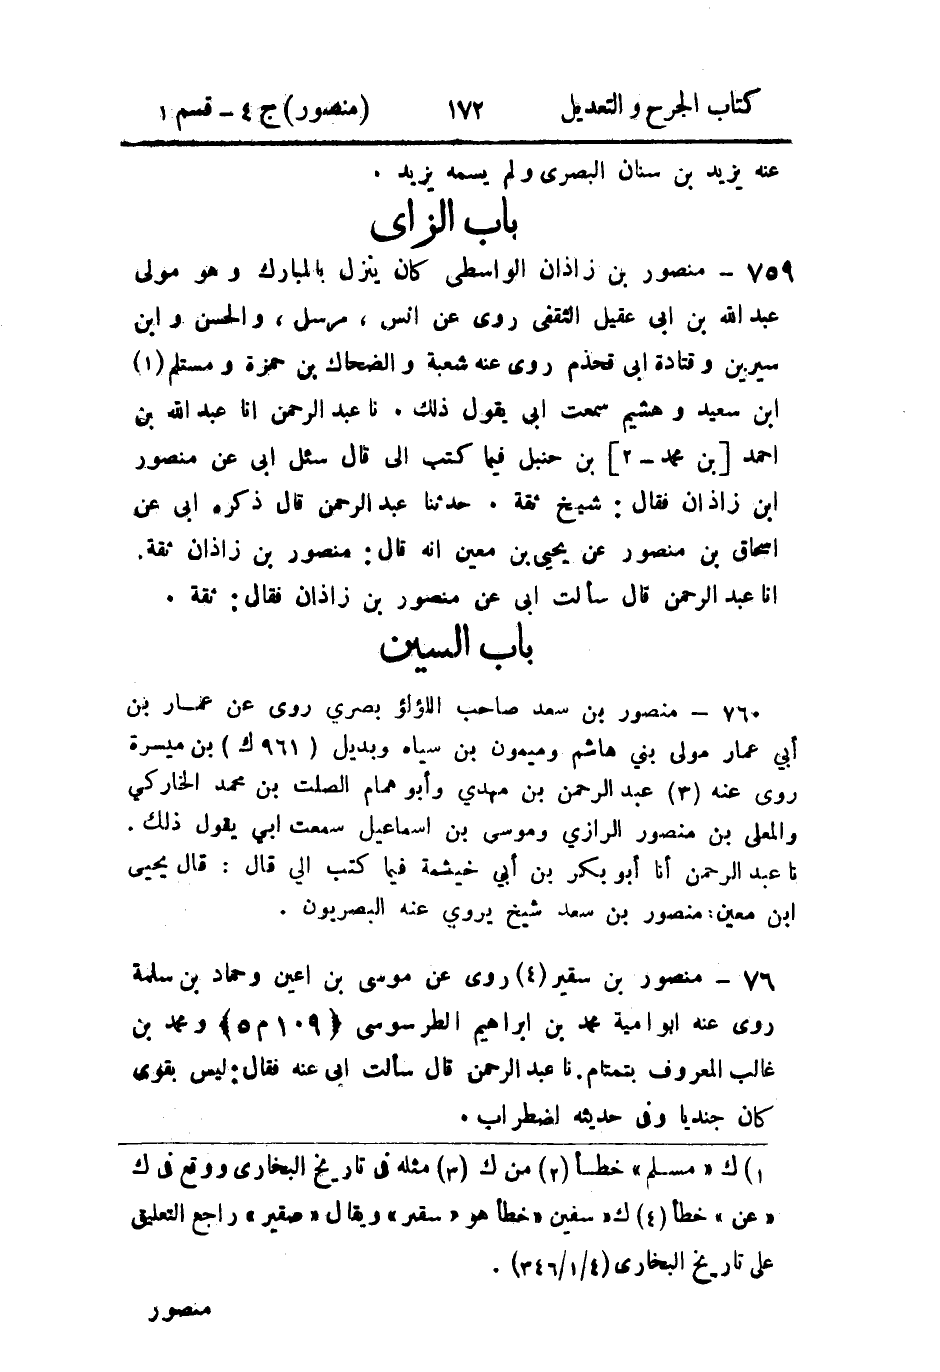 كتاب الجرح و التعديل ١٧٢ (منصور) ج ٤ - قسم ١
عنه يزيد بن سنان البصرى و لم يسمه يزيد .
باب الزاى
٧٥٩ - منصور بن زاذان الواسطى كان ينزل بالمبارك و هو مولى
عبد الله بن ابى عقيل الثقفى روى عن انس ، مرسل ، و الحسن و ابن
سيرين و قتادة ابى قحذم روى عنه شعبة و الضحاك بن حمزة و مستلم (١)
ابن سعيد و هشيم سمعت ابى يقول ذلك . نا عبد الرحمن انا عبد الله بن
احمد [ بن محمد - ٢ ] بن حنبل فيما كتب الى قال سئل ابى عن منصور
ابن زاذان فقال : شيخ ثقة . حدثنا عبد الرحمن قال ذكره ابى عن
اسحاق بن منصور عن يحيى بن معين انه قال : منصور بن زاذان ثقة .
انا عبد الرحمن قال سألت ابى عن منصور بن زاذان فقال : ثقة .
باب السين
٧٦٠ - منصور بن سعد صاحب اللؤلؤ بصري روى عن عمار بن
أبي عمار مولى بني هاشم وميمون بن سياه وبديل ( ٩٦١ ك ) بن ميسرة
روى عنه (٣) عبد الرحمن بن مهدي وأبو همام الصلت بن محمد الخاركي
والمعلى بن منصور الرازي وموسى بن اسماعيل سمعت ابي يقول ذلك .
نا عبد الرحمن أنا أبو بكر بن أبي خيثمة فيما كتب الي قال : قال يحيى
ابن معين : منصور بن سعد شيخ يروي عنه البصريون .
٧٦ - منصور بن سقير (٤) روى عن موسى بن اعين وحماد بن سلمة
روى عنه ابو امية محمد بن ابراهيم الطرسوسى ﴿ ١٠٩ م ٥ ﴾ و محمد بن
غالب المعروف بتمتام . نا عبد الرحمن قال سألت ابى عنه فقال : ليس بقوى
كان جنديا وفى حديثه اضطراب .
١) ك « مسلم » خطأ (٢) من ك (٣) مثله فى تاريخ البخارى ووقع فى ك
« عن » خطأ (٤) ك « سفين » خطأ هو « سقير » ويقال « صقير » راجع التعليق
على تاريخ البخارى (٣٤٦/١/٤) .
منصور